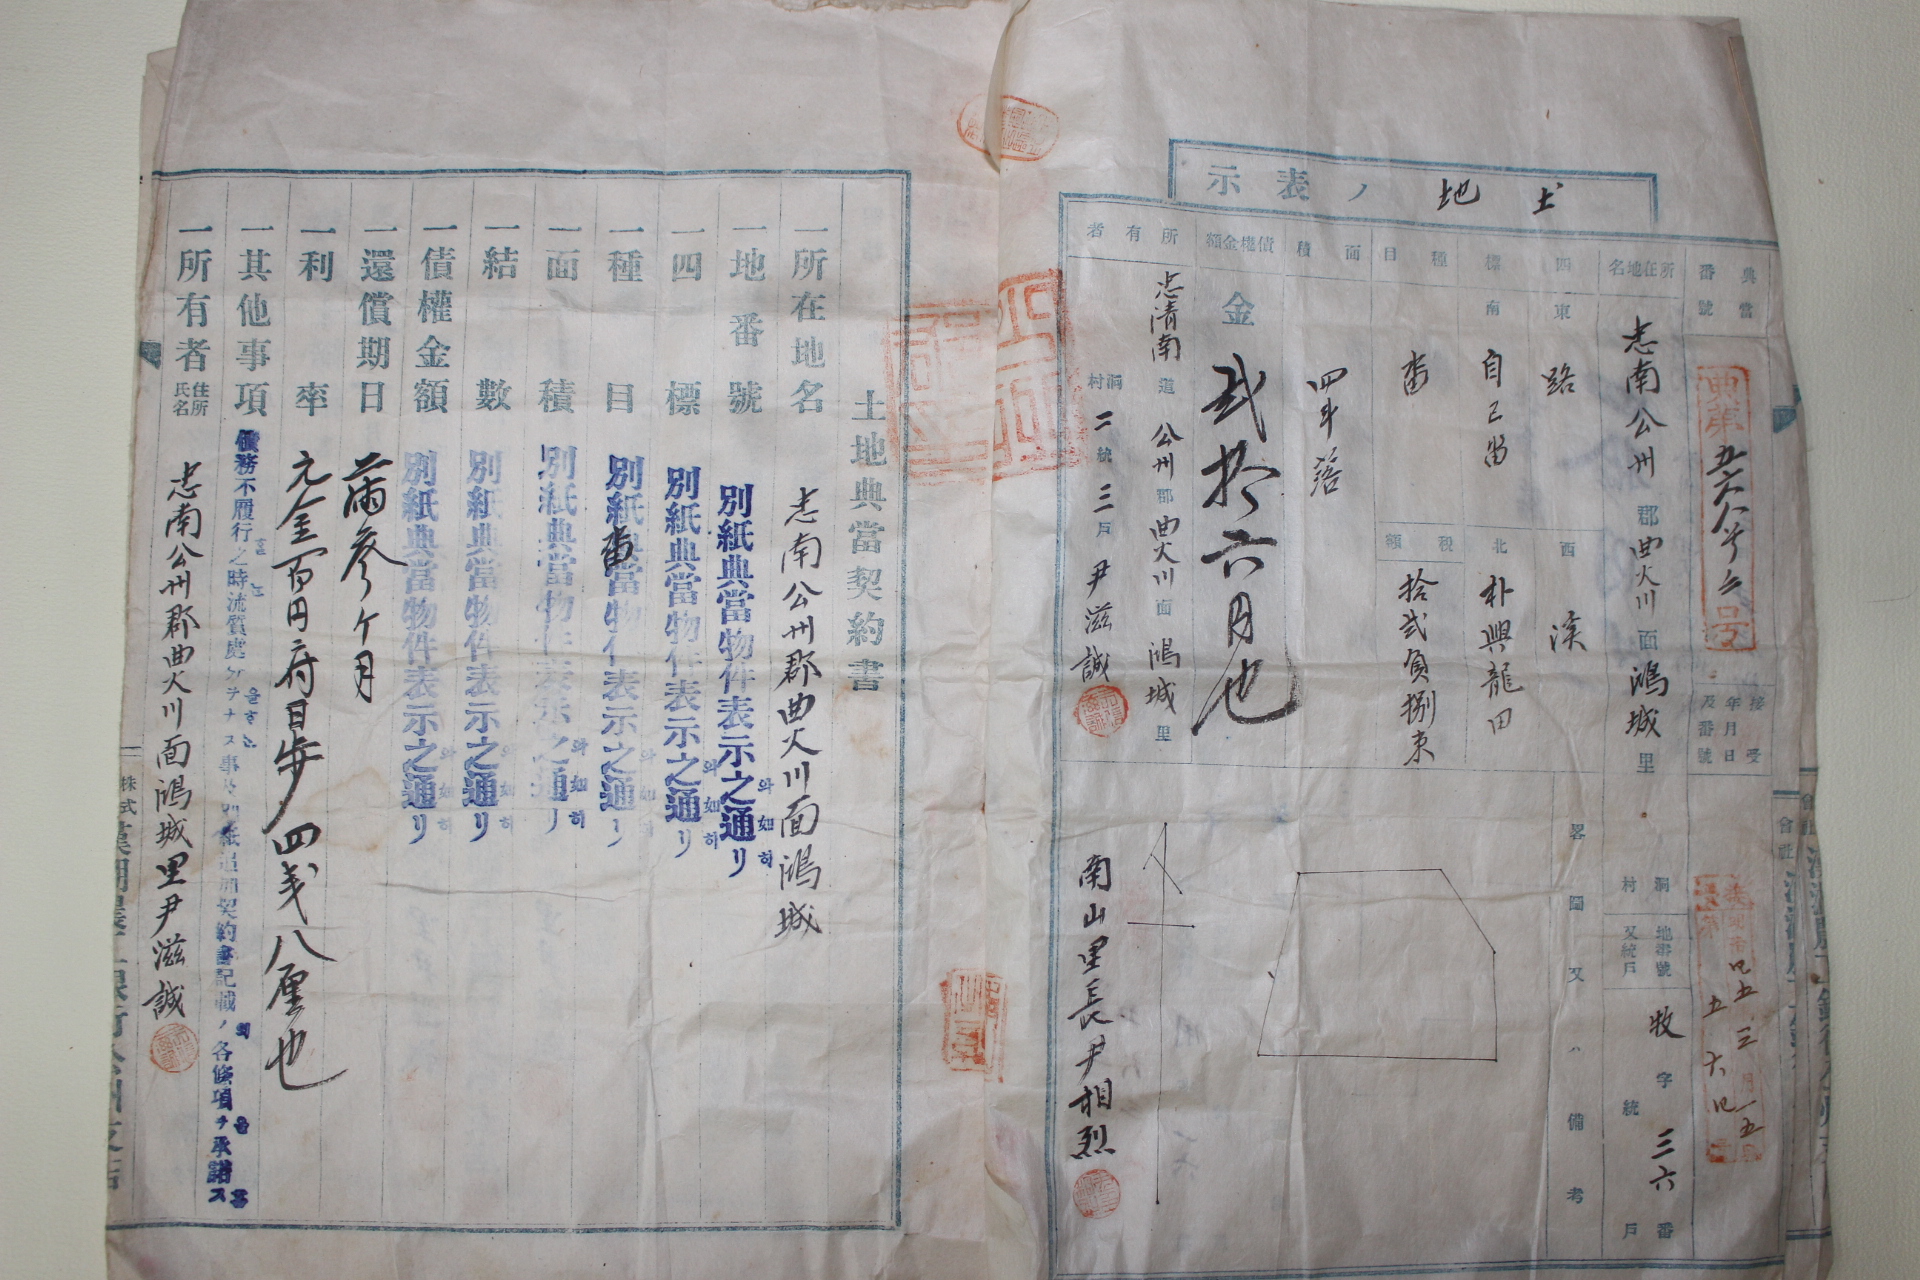 土地ノ表示
典當番號
典第五六八号ノ六号
接受年月日及番號
明治四五、三月一五
五六四
所在地名
忠南公州郡曲火川面鴻城里
洞村
地番號又統戶
牧字三六番
統戶
四標
東 路
西 渓
南 自己畓
北 朴興龍田
種目
畓
稅額
拾貳負捌束
面積
四斗落
債權金額
金貳拾六円也
所有者
忠清南道公州郡曲火川面鴻城里
洞村二統三戶尹滋誠
略圖又ハ備考
南山里長尹相烈
土地典當契約書
一所在地名 忠南公州郡曲火川面鴻城
一地番號 別紙典當物件表示之通リ와如히
一四標 別紙典當物件表示之通リ와如히
一種目 別紙典當物件表示之通リ와如히
畓
一面積 別紙典當物件表示之通リ와如히
一結數 別紙典當物件表示之通リ와如히
一債權金額 別紙典當物件表示之通リ와如히
一還償期日 滿參ケ月
一利率 元金百円ニ付日步四戔八厘也
一其他事項 債務不履行之時流質處分ヲナス事 契約書記載ノ各條項ヲ承諾ス
一所有者住所氏名 忠南公州郡曲火川面鴻城里尹滋誠
株式